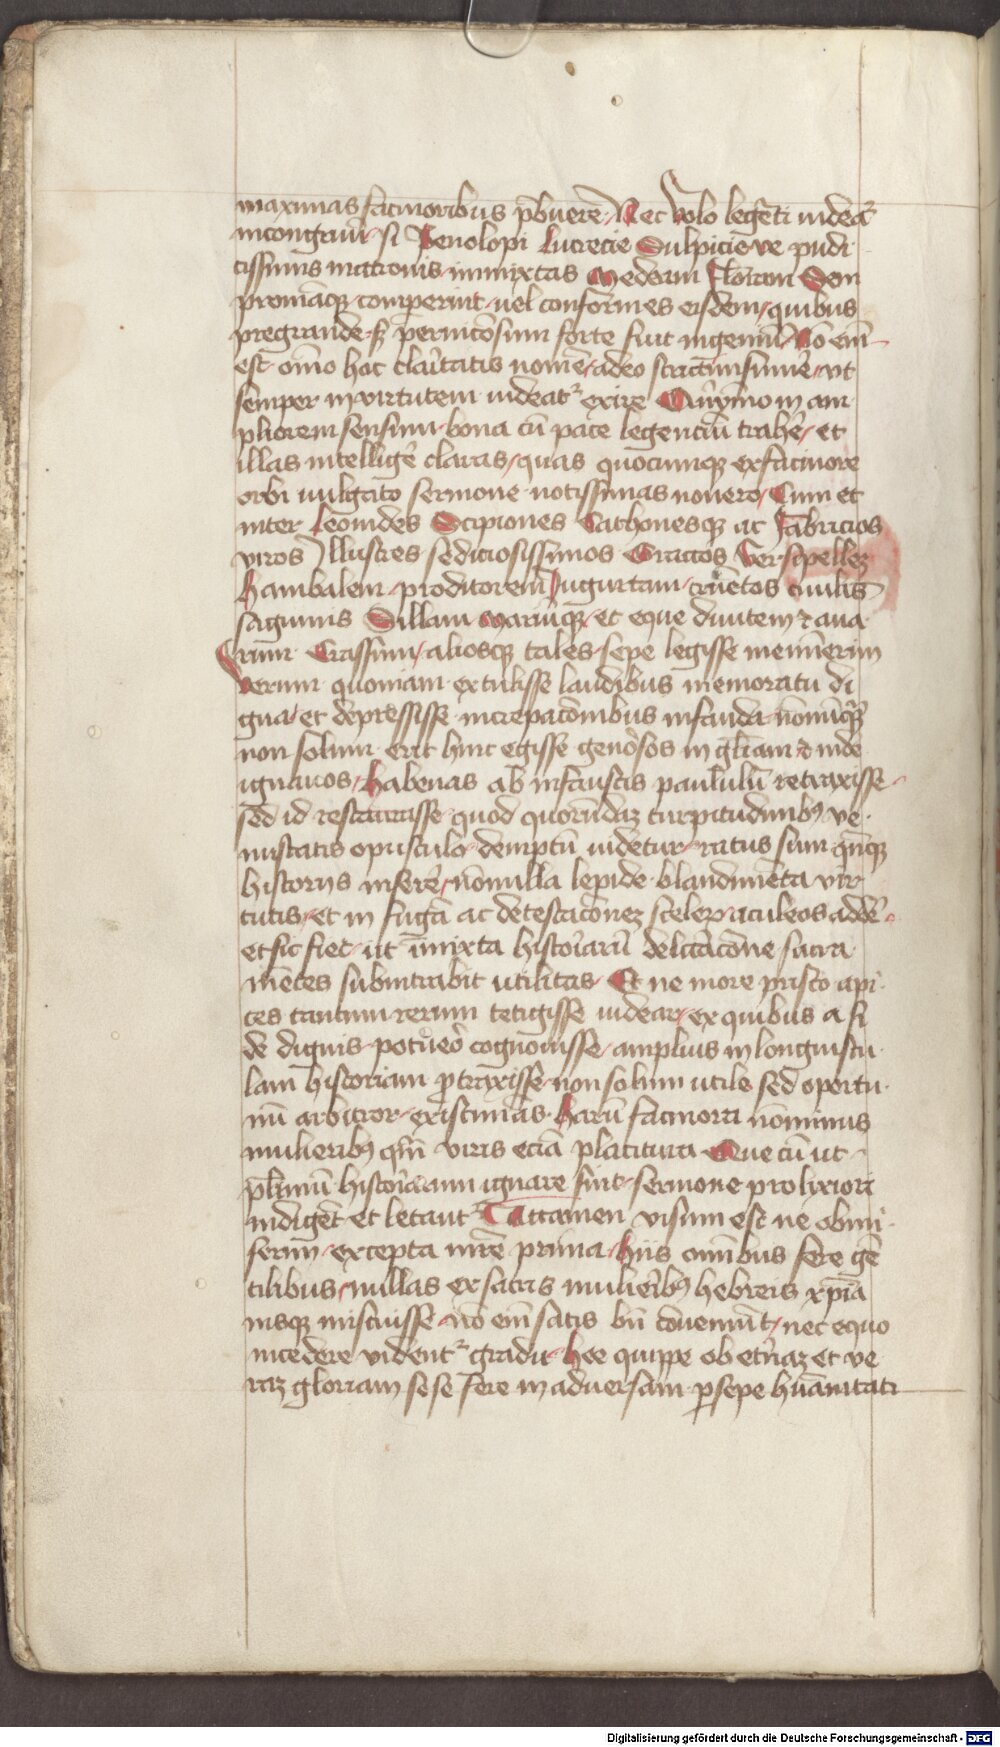 maximas facinoribus p̄buere᷑ Nec volo legēti videat᷑
incongruū si Penolopi Lucrecie Sulpicieve pudi
cissimis matronis inmixtas Medeam Floram Sem
proniāq̄ comperint vel conformes eisdem quibus
pregrande sꝫ perniciosum forte fuit ingeniū Nō em̄
est om̄o hoc claritatis nomē adeo strictim sumē ut
semper in virtutem videat᷑ exire Quȳmo in am
pliorem sensum bona cū pace legenciū trahē et
illas intelligē claras quas quocumqꝫ ex facinore
orbi vulgato sermone notissimas novero Cum et
inter Leonides Scipiones Cathonesqꝫ ac Fabricios
viros Illustres sediciosissimos Graccos Versipellez
Hanibalem proditorem Jugurtam cruētos civilis
sāguinis Sillam Mariūqꝫ et eque divitem ⁊ ava
rum Crassum aliosqꝫ tales sepe legisse meminerim
Verum quoniam extulisse laudibus memoratu di
gna et depressisse increpacōnibus infanda nōnūqꝫ
non solum erit hinc egisse genōsos in gl̄iam ⁊ inde
ignavos habenas ab infaustis paululū retraxisse
sed id restaurasse quod quorūdaꝫ turpitudinibꝰ ve
nustatis opusculo demptū videtur ratus sum qn̄qꝫ
historijs inserē nōnulla lepide blandimēta vir
tutis et in fugā ac detestacōneꝫ scelerꝫ aculeos addē
et sic fiet ut īmixta historiarū delc̄tacōne sacra
mētes subintrabit utilitas Et ne more prisco api
ces tantum rerum tetigisse videar ex quibus a fi
de dignis potuero cognovisse amplius in longiuscu
lam historiam ꝓtraxisse non solum utile sed oportu
nū arbitror existimās harū facinora nōminus
mulieribꝰ qm̄ viris eciā placitura Que cū ut
pl̄imū historiarum ignare sint sermone prolixiori
indigēt et letant᷑ Attamen visum est ne obmi
serim excepta mrē prima hiis om̄ibus fere gē
tilibus nullas ex sacris mulieribꝰ hebreis xp̄ia
nisqꝫ miscuisse nō em̄ satis bn̄ conveniūt nec equo
incedere vident᷑ gradu hee quippe ob et̄naꝫ et ve
raꝫ gloriam sese fere in adversam ꝑsepe hūanitati
Digitalisierung gefördert durch die Deutsche Forschungsgemeinschaft - DFG